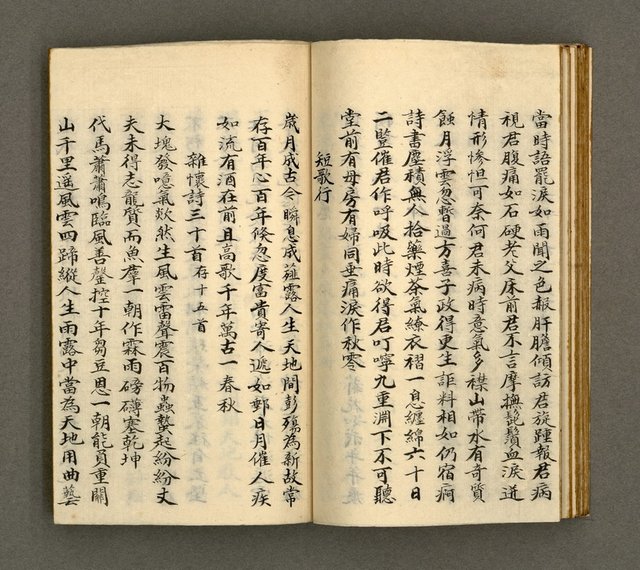 當時語罷淚如雨聞之色赧肝膽傾訪君旋踵報君病
視君腹痛如石硬老父床前君不言摩撫髭鬚血淚迸
情形慘怛可奈何君未病時意氣多襟山帶水有奇質
蝕月浮雲忽暫過方喜子政得更生詎料相如仍宿痾
詩書塵積無人拾藥煙茶氣繚衣褶一息纏綿六十日
二豎催君作呼吸此時欲得君叮嚀九重淵下不可聽
堂前有母房有婦同垂痛淚作秋零
短歌行
歲月成古今瞬息成薤露人生天地間彭殤為新故常
存百年心百年倏忽度富貴寄人遞如郵日月催人疾
如流有酒在前且高歌千年萬古一春秋
雜懷詩三十首存十五首
大塊發噫氣欻然生風雲雷聲震百物蟲蟄起紛紛丈
夫未得志龍質而魚羣一朝作霖雨磅礴塞乾坤
代馬蕭蕭鳴臨風善罄控十年芻豆恩一朝能員重關
山千里遥風雲四蹄縱人生雨露中當為天地用曲藝